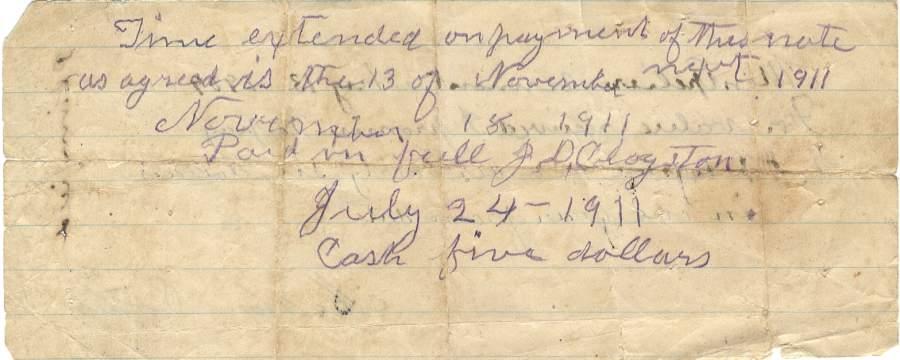 Time extended on payment of this note
as agreed is the 13 of November next 1911
November 1911
Paid in full J. D. Clogston
July 24 - 1911
Cash five dollars